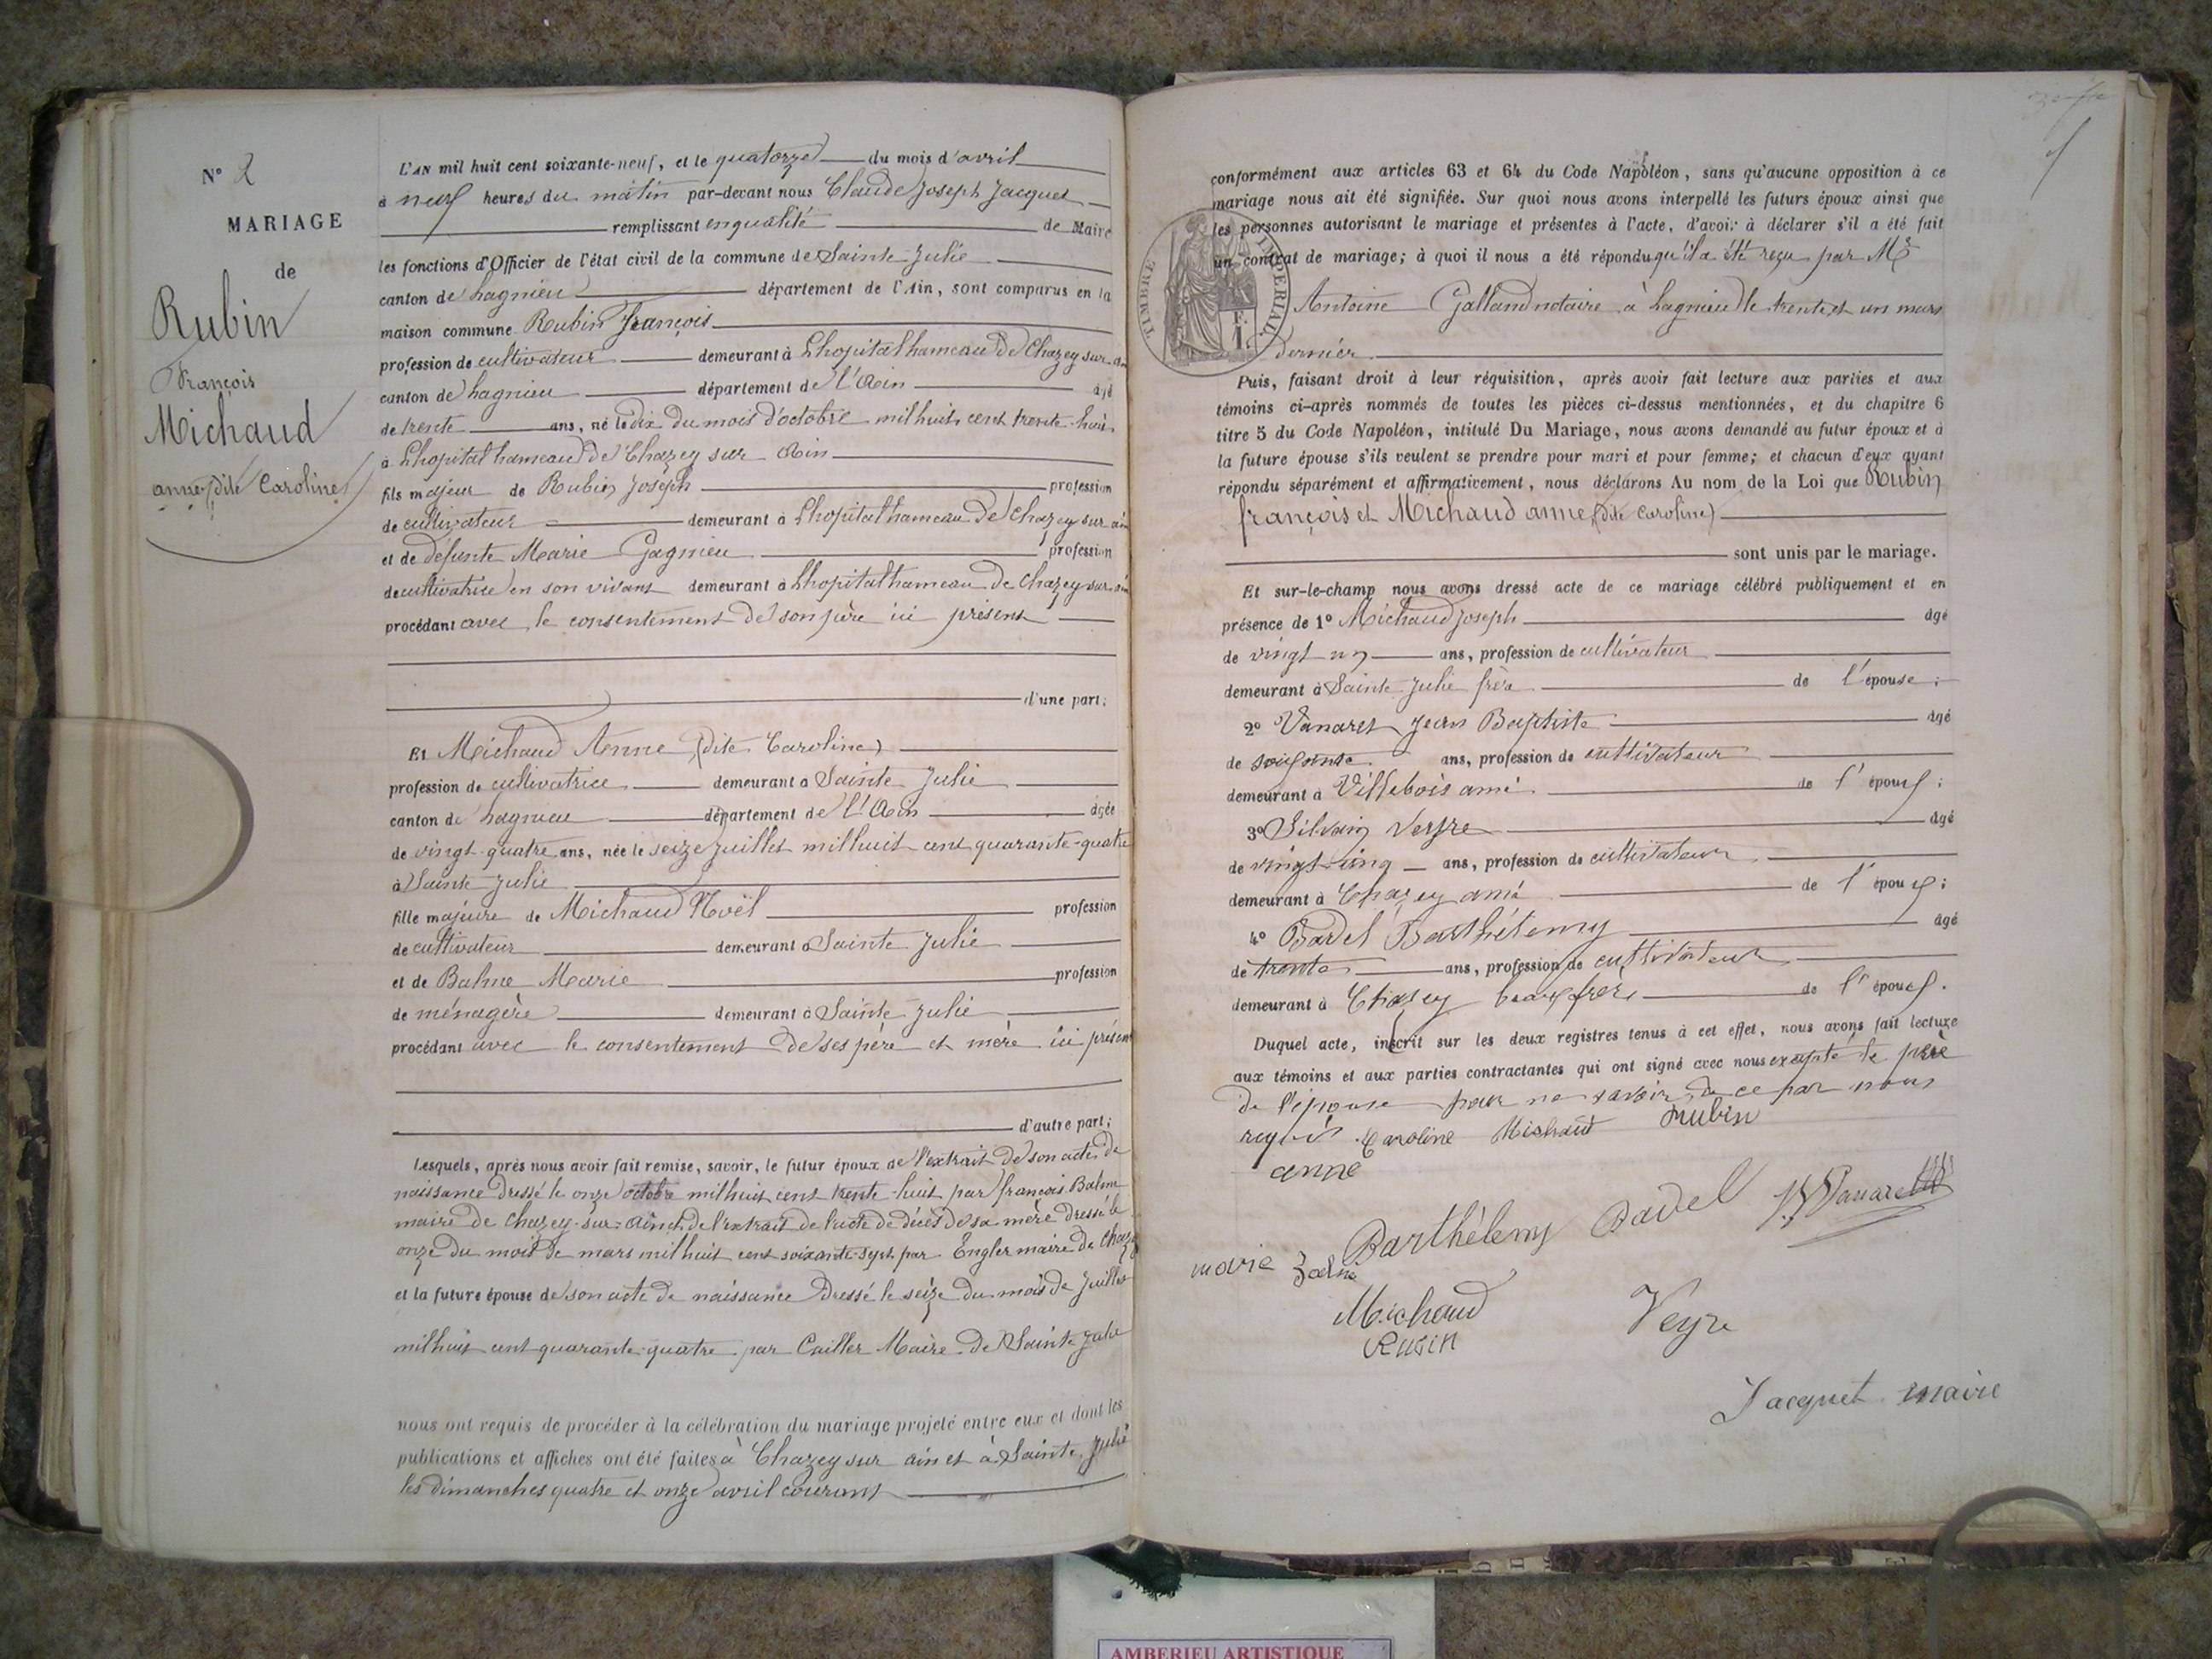 N° 2
MARIAGE
de
Rubin
François
Michaud
anne (dite Caroline)
L'AN mil huit cent soixante-neuf, et le quatorze du mois d'avril
à neuf heures du matin par-devant nous Claude Joseph Jacquet
remplissant en qualité de Maire
les fonctions d'Officier de l'état civil de la commune de Sainte Julie
canton de Lagnieu département de l'Ain, sont comparus en la
maison commune Rubin François
profession de cultivateur demeurant à Lhopital hameau de Chazey sur ain
canton de Lagnieu département de l'Ain âgé
de trente ans, né le dix du mois d'octobre mil huit cent trente-huit
à Lhopital hameau de Chazey sur Ain
fils majeur de Rubin Joseph profession
de cultivateur demeurant à Lhopital hameau de Chazey sur ain
et de défunte Marie Gagnieu profession
de cultivatrice en son vivant demeurant à Lhopital hameau de Chazey sur ain
procédant avec le consentement de son père ici présent
d'une part;
Et Michaud Anne (dite Caroline)
profession de cultivatrice demeurant à Sainte Julie
canton de Lagnieu département de l'Ain âgée
de vingt-quatre ans, née le seize juillet mil huit cent quarante-quatre
à Sainte Julie
fille majeure de Michaud Noël profession
de cultivateur demeurant à Sainte Julie
et de Balme Marie profession
de ménagère demeurant à Sainte Julie
procédant avec le consentement de ses père et mère ici présent
d'autre part;
Lesquels, après nous avoir fait remise, savoir, le futur époux de l'extrait de son acte de
naissance dressé le onze octobre mil huit cent trente-huit par françois Balme
maire de Chazey-sur-Ain et de l'extrait de l'acte de décès de sa mère dressé le
onze du mois de mars mil huit cent soixante-sept par Engler maire de Chazey
et la future épouse de son acte de naissance dressé le seize du mois de Juillet
mil huit cent quarante-quatre par Cailler Maire de Sainte Julie
nous ont requis de procéder à la célébration du mariage projeté entre eux et dont les
publications et affiches ont été faites à Chazey sur ain et à Sainte Julie
les dimanches quatre et onze avril courant
conformément aux articles 63 et 64 du Code Napoléon, sans qu'aucune opposition à ce
mariage nous ait été signifiée. Sur quoi nous avons interpellé les futurs époux ainsi que
les personnes autorisant le mariage et présentes à l'acte, d'avoir à déclarer s'il a été fait
un contrat de mariage; à quoi il nous a été répondu qu'il a été reçu par Me
Antoine Galland notaire à Lagnieu le trente et un mars
dernier
TIMBRE IMPERIAL
1 F.
Puis, faisant droit à leur réquisition, après avoir fait lecture aux parties et aux
témoins ci-après nommés de toutes les pièces ci-dessus mentionnées, et du chapitre 6
titre 5 du Code Napoléon, intitulé Du Mariage, nous avons demandé au futur époux et à
la future épouse s'ils veulent se prendre pour mari et pour femme; et chacun d'eux ayant
répondu séparément et affirmativement, nous déclarons Au nom de la Loi que Rubin
françois et Michaud anne (dite Caroline)
sont unis par le mariage.
Et sur-le-champ nous avons dressé acte de ce mariage célébré publiquement et en
présence de 1° Michaud Joseph âgé
de vingt un ans, profession de cultivateur
demeurant à Sainte Julie frère de l'épouse;
2° Vanaret Jean Baptiste âgé
de soixante ans, profession de cultivateur
demeurant à Villebois ami de l'époux;
3° Silvain Veyre âgé
de vingt-cinq ans, profession de cultivateur
demeurant à Chazey ami de l'époux;
4° Badel Barthélemy âgé
de trente ans, profession de cultivateur
demeurant à Chazey beau frère de l'époux.
Duquel acte, inscrit sur les deux registres tenus à cet effet, nous avons fait lecture
aux témoins et aux parties contractantes qui ont signé avec nous excepté le père
de l'épouse pour ne savoir de ce par nous
requis Caroline Michaud Rubin
anne
Barthélemy Badel Vanaret
marie Balme
Michaud Veyre
Rubin
Jacquet maire
AMBERIEU ARTISTIQUE